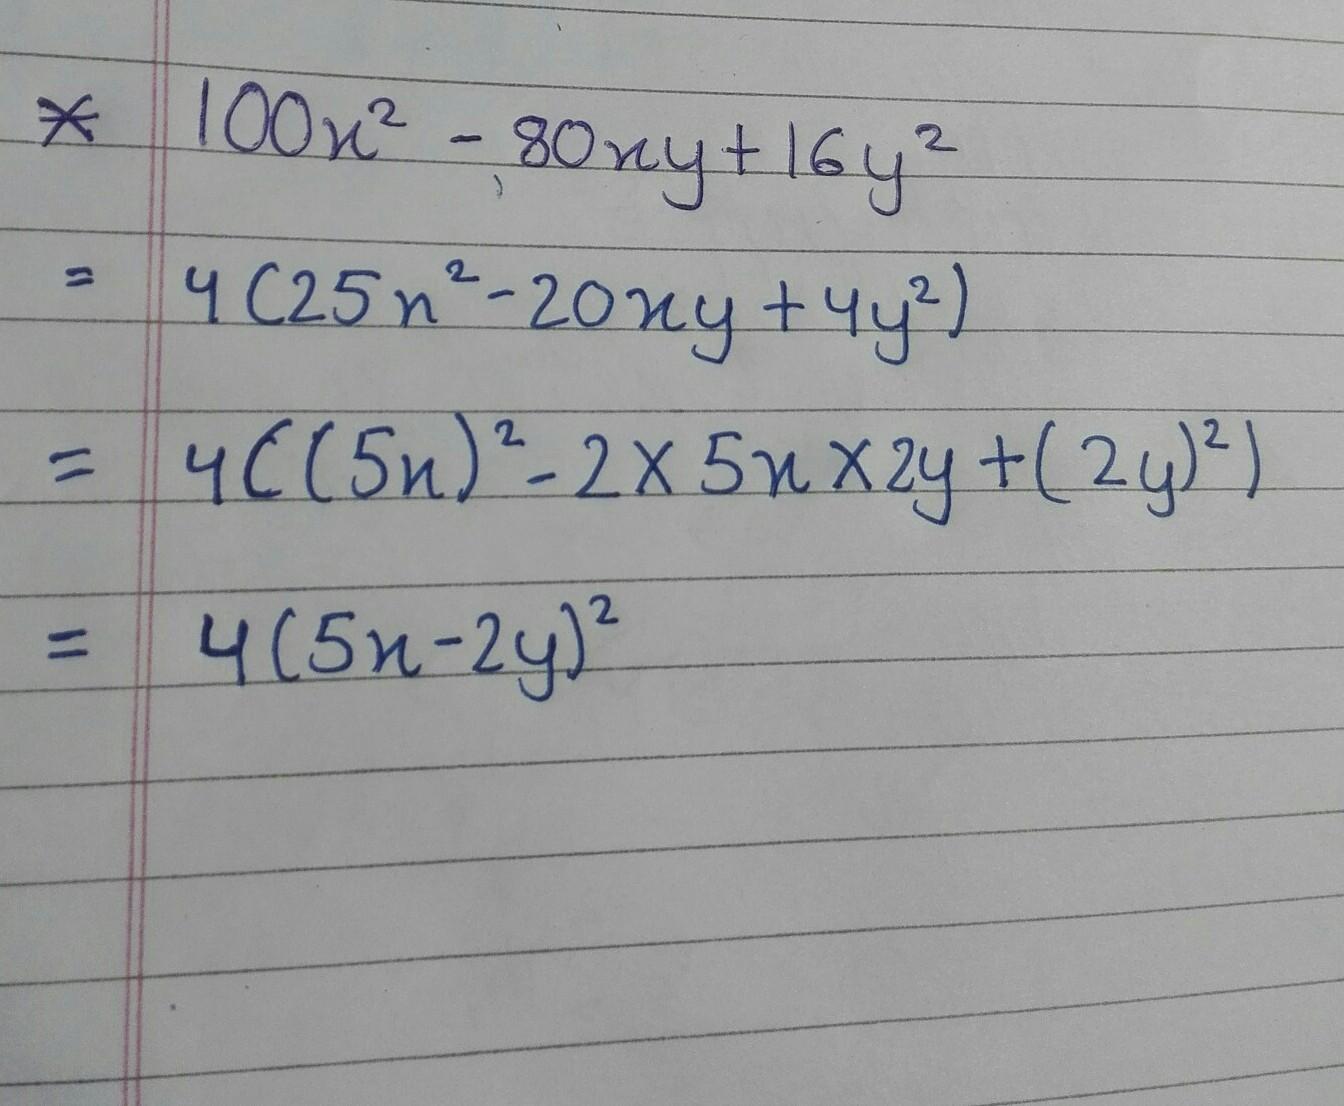 * 100x² - 80xy + 16y²
= 4(25x² - 20xy + 4y²)
= 4((5x)² - 2 × 5x × 2y + (2y)²)
= 4(5x - 2y)²